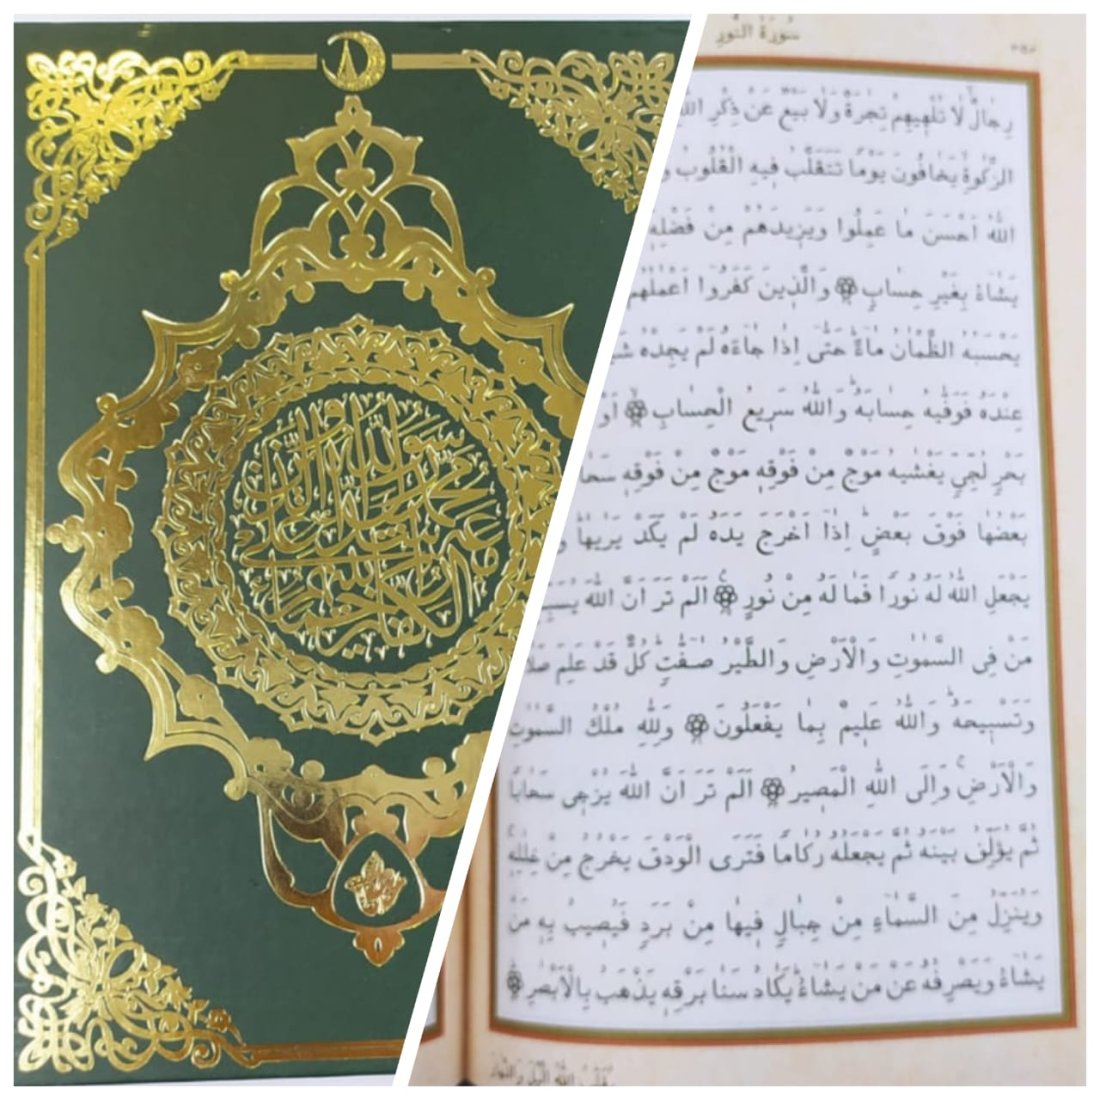 محمد رسول الله والذين
اشداء على الكفار رحماء
سُورَةُ النُّورِ
رِجَالٌ لَا تُلْهٖيهِمْ تِجَارَةٌ وَلَا بَيْعٌ عَنْ ذِكْرِ
الزَّكٰوةِ يَخَافُونَ يَوْمًا تَتَقَلَّبُ فٖيهِ الْقُلُوبُ
اللّٰهُ اَحْسَنَ مَا عَمِلُوا وَيَزٖيدَهُمْ مِنْ فَضْلِهٖ
يَشَٓاءُ بِغَيْرِ حِسَابٍ ۞ وَالَّذٖينَ كَفَرُٓوا اَعْمَالُهُمْ
يَحْسَبُهُ الظَّمْاٰنُ مَٓاءً حَتّٰٓى اِذَا جَٓاءَهُ لَمْ يَجِدْهُ
عِنْدَهُ فَوَفّٰيهُ حِسَابَهُ وَاللّٰهُ سَرٖيعُ الْحِسَابِ ۞
بَحْرٍ لُجِّيٍّ يَغْشٰيهُ مَوْجٌ مِنْ فَوْقِهٖ مَوْجٌ مِنْ فَوْقِهٖ
بَعْضُهَا فَوْقَ بَعْضٍ اِذَٓا اَخْرَجَ يَدَهُ لَمْ يَكَدْ يَرٰيهَا
يَجْعَلِ اللّٰهُ لَهُ نُورًا فَمَا لَهُ مِنْ نُورٍ ۞ اَلَمْ تَرَ اَنَّ اللّٰهَ
مَنْ فِي السَّمٰوَاتِ وَالْاَرْضِ وَالطَّيْرُ صَٓافَّاتٍ كُلٌّ قَدْ عَلِمَ
وَتَسْبٖيحَهُ وَاللّٰهُ عَلٖيمٌ بِمَا يَفْعَلُونَ ۞ وَلِلّٰهِ مُلْكُ السَّمٰوَاتِ
وَالْاَرْضِ وَاِلَى اللّٰهِ الْمَصٖيرُ ۞ اَلَمْ تَرَ اَنَّ اللّٰهَ يُزْجٖي سَحَابًا
ثُمَّ يُؤَلِّفُ بَيْنَهُ ثُمَّ يَجْعَلُهُ رُكَامًا فَتَرَى الْوَدْقَ يَخْرُجُ مِنْ خِلَالِهٖ
وَيُنَزِّلُ مِنَ السَّمَٓاءِ مِنْ جِبَالٍ فٖيهَا مِنْ بَرَدٍ فَيُصٖيبُ بِهٖ مَنْ
يَشَٓاءُ وَيَصْرِفُهُ عَنْ مَنْ يَشَٓاءُ يَكَادُ سَنَا بَرْقِهٖ يَذْهَبُ بِالْاَبْصَارِ ۞
يُقَلِّبُ اللّٰهُ الَّيْلَ وَالنَّهَارَ